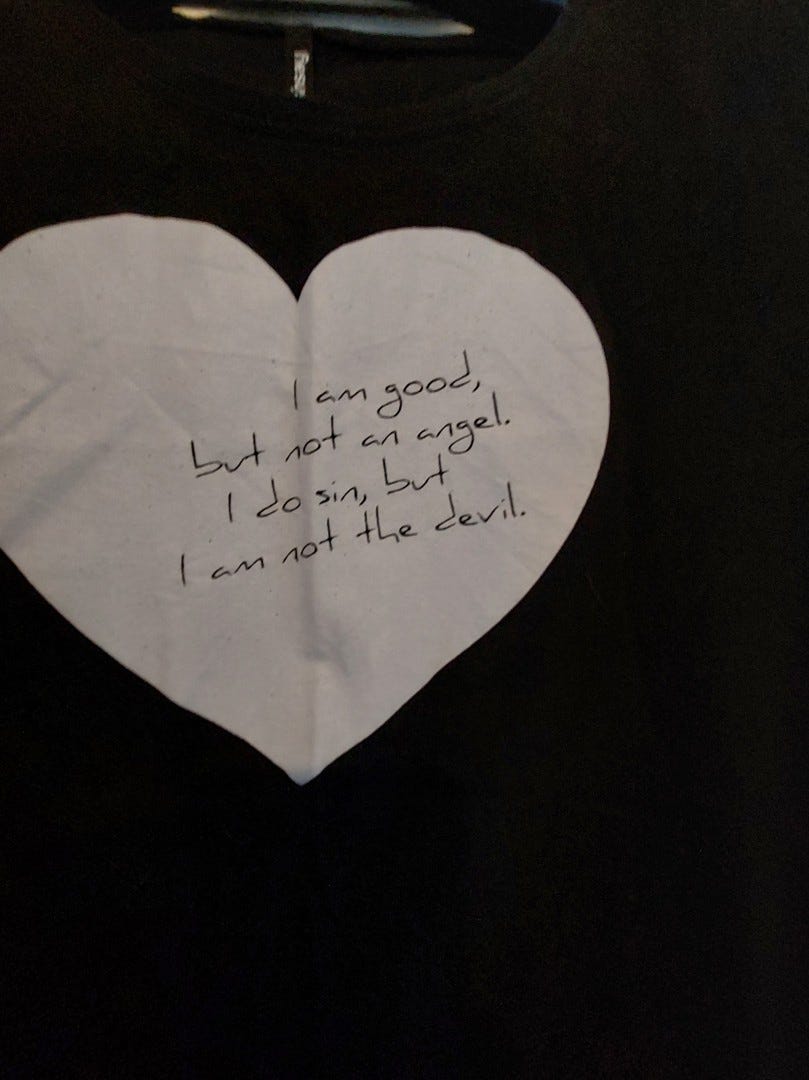 I am good,
but not an angel.
I do sin, but
I am not the devil.